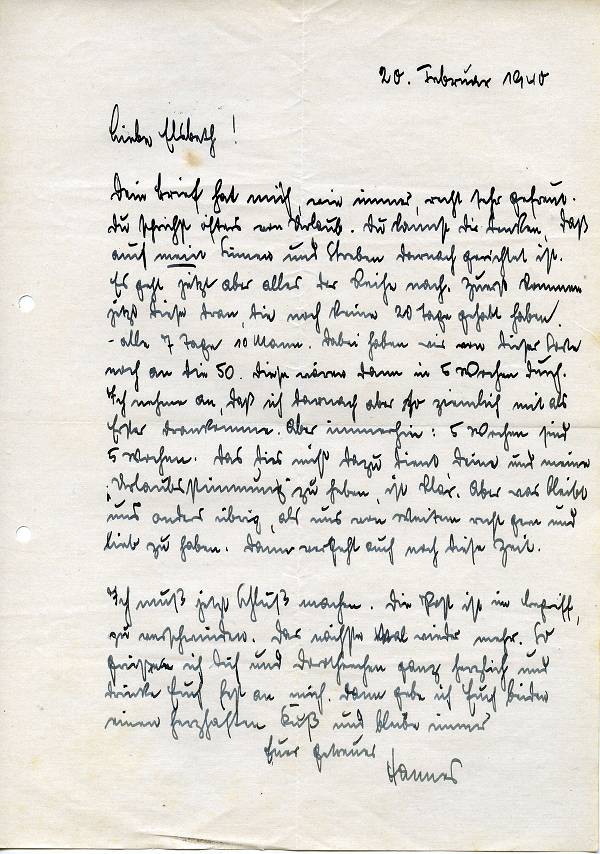 20. Februar 1940
Liebe Elsbeth!
Dein Brief hat mich, wie immer, recht sehr gefreut.
Du schriebst öfters von Urlaub. Du kannst dir denken, daß
auch mein Sinnen und Streben darnach gerichtet ist.
Es geht jetzt aber alles der Reihe nach. Zuerst kommen
jetzt diese dran, die noch keine 20 Tage gehabt haben
- alle 7 Tage 10 Mann. Dabei haben wir von dieser Sorte
noch an die 50. Diese wären dann in 5 Wochen durch.
Ich nehme an, daß ich darnach aber so ziemlich mit als
Erster drankomme. Aber immerhin: 5 Wochen sind
5 Wochen. Das dies nicht dazu dient deine und meine
"Urlaubsstimmung" zu heben, ist klar. Aber was bleibt
uns anders übrig, als uns von weitem recht gern und
lieb zu haben. Dann vergeht auch noch diese Zeit.
Ich muß jetzt Schluß machen. Die Post ist im Begriff,
zu verschwinden. Das nächste Mal wieder mehr. So
grüße ich Dich und Dorthchen ganz herzlich und
drücke Euch fest an mich. Dann gebe ich Euch beiden
einen herzhaften Kuß und bleibe immer
Euer getreuer
Hannes